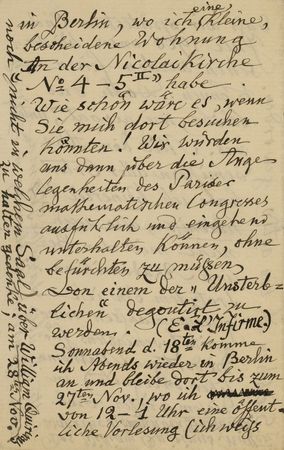 in Berlin, wo ich eine kleine,
bescheidene Wohnung
An der Nicolaikirche
No 4-5 II" habe.
Wie schön wär es, wenn
Sie mich dort besuchen
könnten! Wir würden
uns dann über die Ange
legenheiten des Pariser
mathematischen Congresses
ausführlich und eingehend
unterhalten können, ohne
befürchten zu müssen,
von einem der „Unsterb-
lichen" degoutirt zu
werden. (E. L'Infirme.)
Sonnabend d. 18ten komme
ich Abends wieder in Berlin
an und bleibe dort bis zum
27ten Nov., wo ich
von 12-1 Uhr eine öffent-
liche Vorlesung (ich weiß
noch nicht in welchem Saal) über William
zu halten gedenke; am 28. Nov.